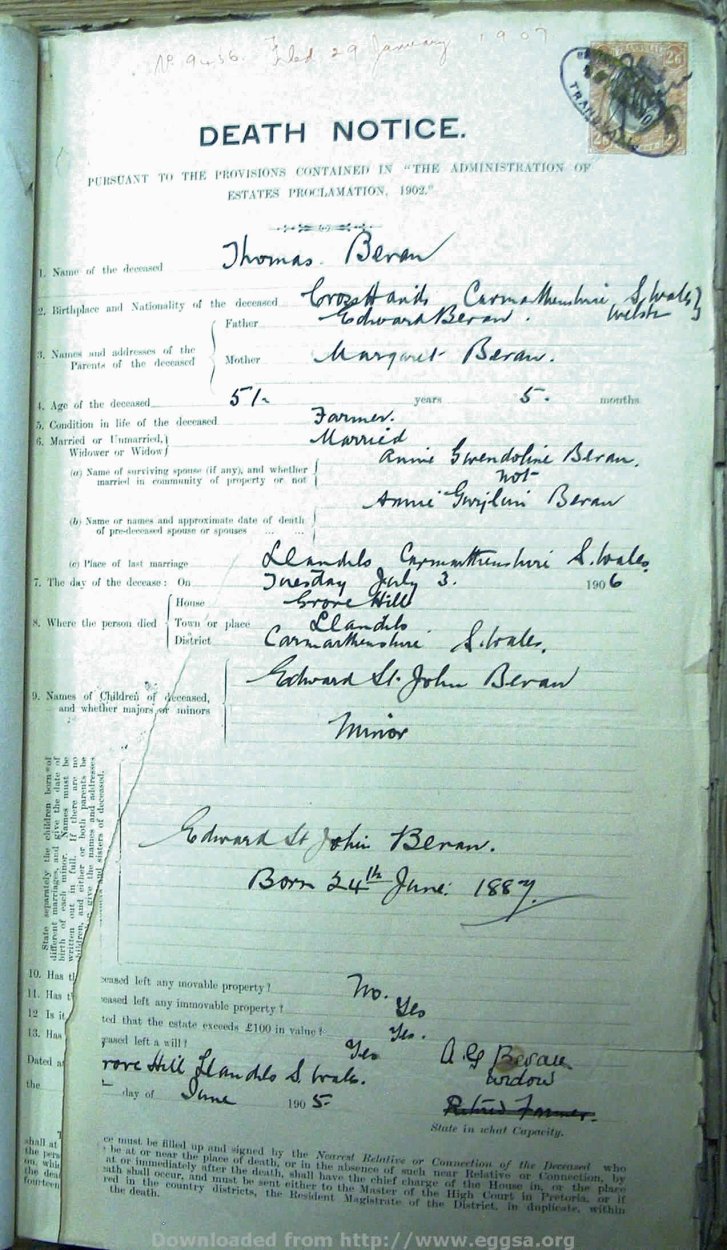 No 9456. Filed 29 January 1907
TRANSVAAL
2/6
DEATH NOTICE.
PURSUANT TO THE PROVISIONS CONTAINED IN "THE ADMINISTRATION OF
ESTATES PROCLAMATION, 1902."
1. Name of the deceased Thomas Bevan
2. Birthplace and Nationality of the deceased Cross Hands Carmarthenshire, S. Wales }
Welsh
3. Names and addresses of the Parents of the deceased
Father Edward Bevan.
Mother Margaret Bevan.
4. Age of the deceased 51 years 5 months
5. Condition in life of the deceased Farmer.
6. Married or Unmarried, Widower or Widow Married
(a) Name of surviving spouse (if any), and whether married in community of property or not
Annie Gwendoline Bevan.
not
Annie Bevan
(b) Name or names and approximate date of death of pre-deceased spouse or spouses ... ...
(c) Place of last marriage Llandilo Carmarthenshire S. Wales
7. The day of the decease: On Tuesday July 3. 1906
8. Where the person died
House Grove Hill
Town or place Llandilo
District Carmarthenshire S. Wales.
9. Names of Children of deceased, and whether majors or minors
Edward St. John Bevan
Minor
State separately the children born of
different marriages, and give the date of
birth of each minor. Names must be
written out in full. If there are no
children, and either or both parents be
give the names and addresses
and sisters of deceased.
Edward St John Bevan.
Born 24th June 1887.
10. Has th eased left any movable property? No.
11. Has th eased left any immovable property? Yes
12 Is it ted that the estate exceeds £100 in value? Yes.
13. Has eased left a will? Yes
A G Bevan
widow
Dated at rove Hill Llandilo S. Wales.
the day of June 1905
Retired Farmer.
State in what Capacity.
ce must be filled up and signed by the Nearest Relative or Connection of the Deceased who
shall at be at or near the place of death, or in the absence of such near Relative or Connection, by
the pers at or immediately after the death, shall have the chief charge of the House in, or the place
on, whi ath shall occur, and must be sent either to the Master of the High Court in Pretoria, or if
the dea red in the country districts, the Resident Magistrate of the District, in duplicate, within
fourteen the death.
Downloaded from http://www.eggsa.org